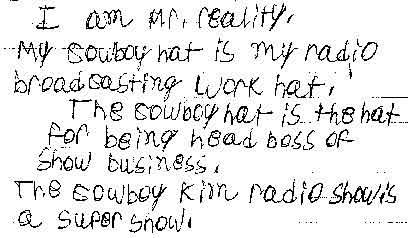 I am Mr. reality.
My cowboy hat is my radio
broadcasting work hat.
The cowboy hat is the hat
for being head boss of
show business.
The cowboy Kim radio show is
a super show.